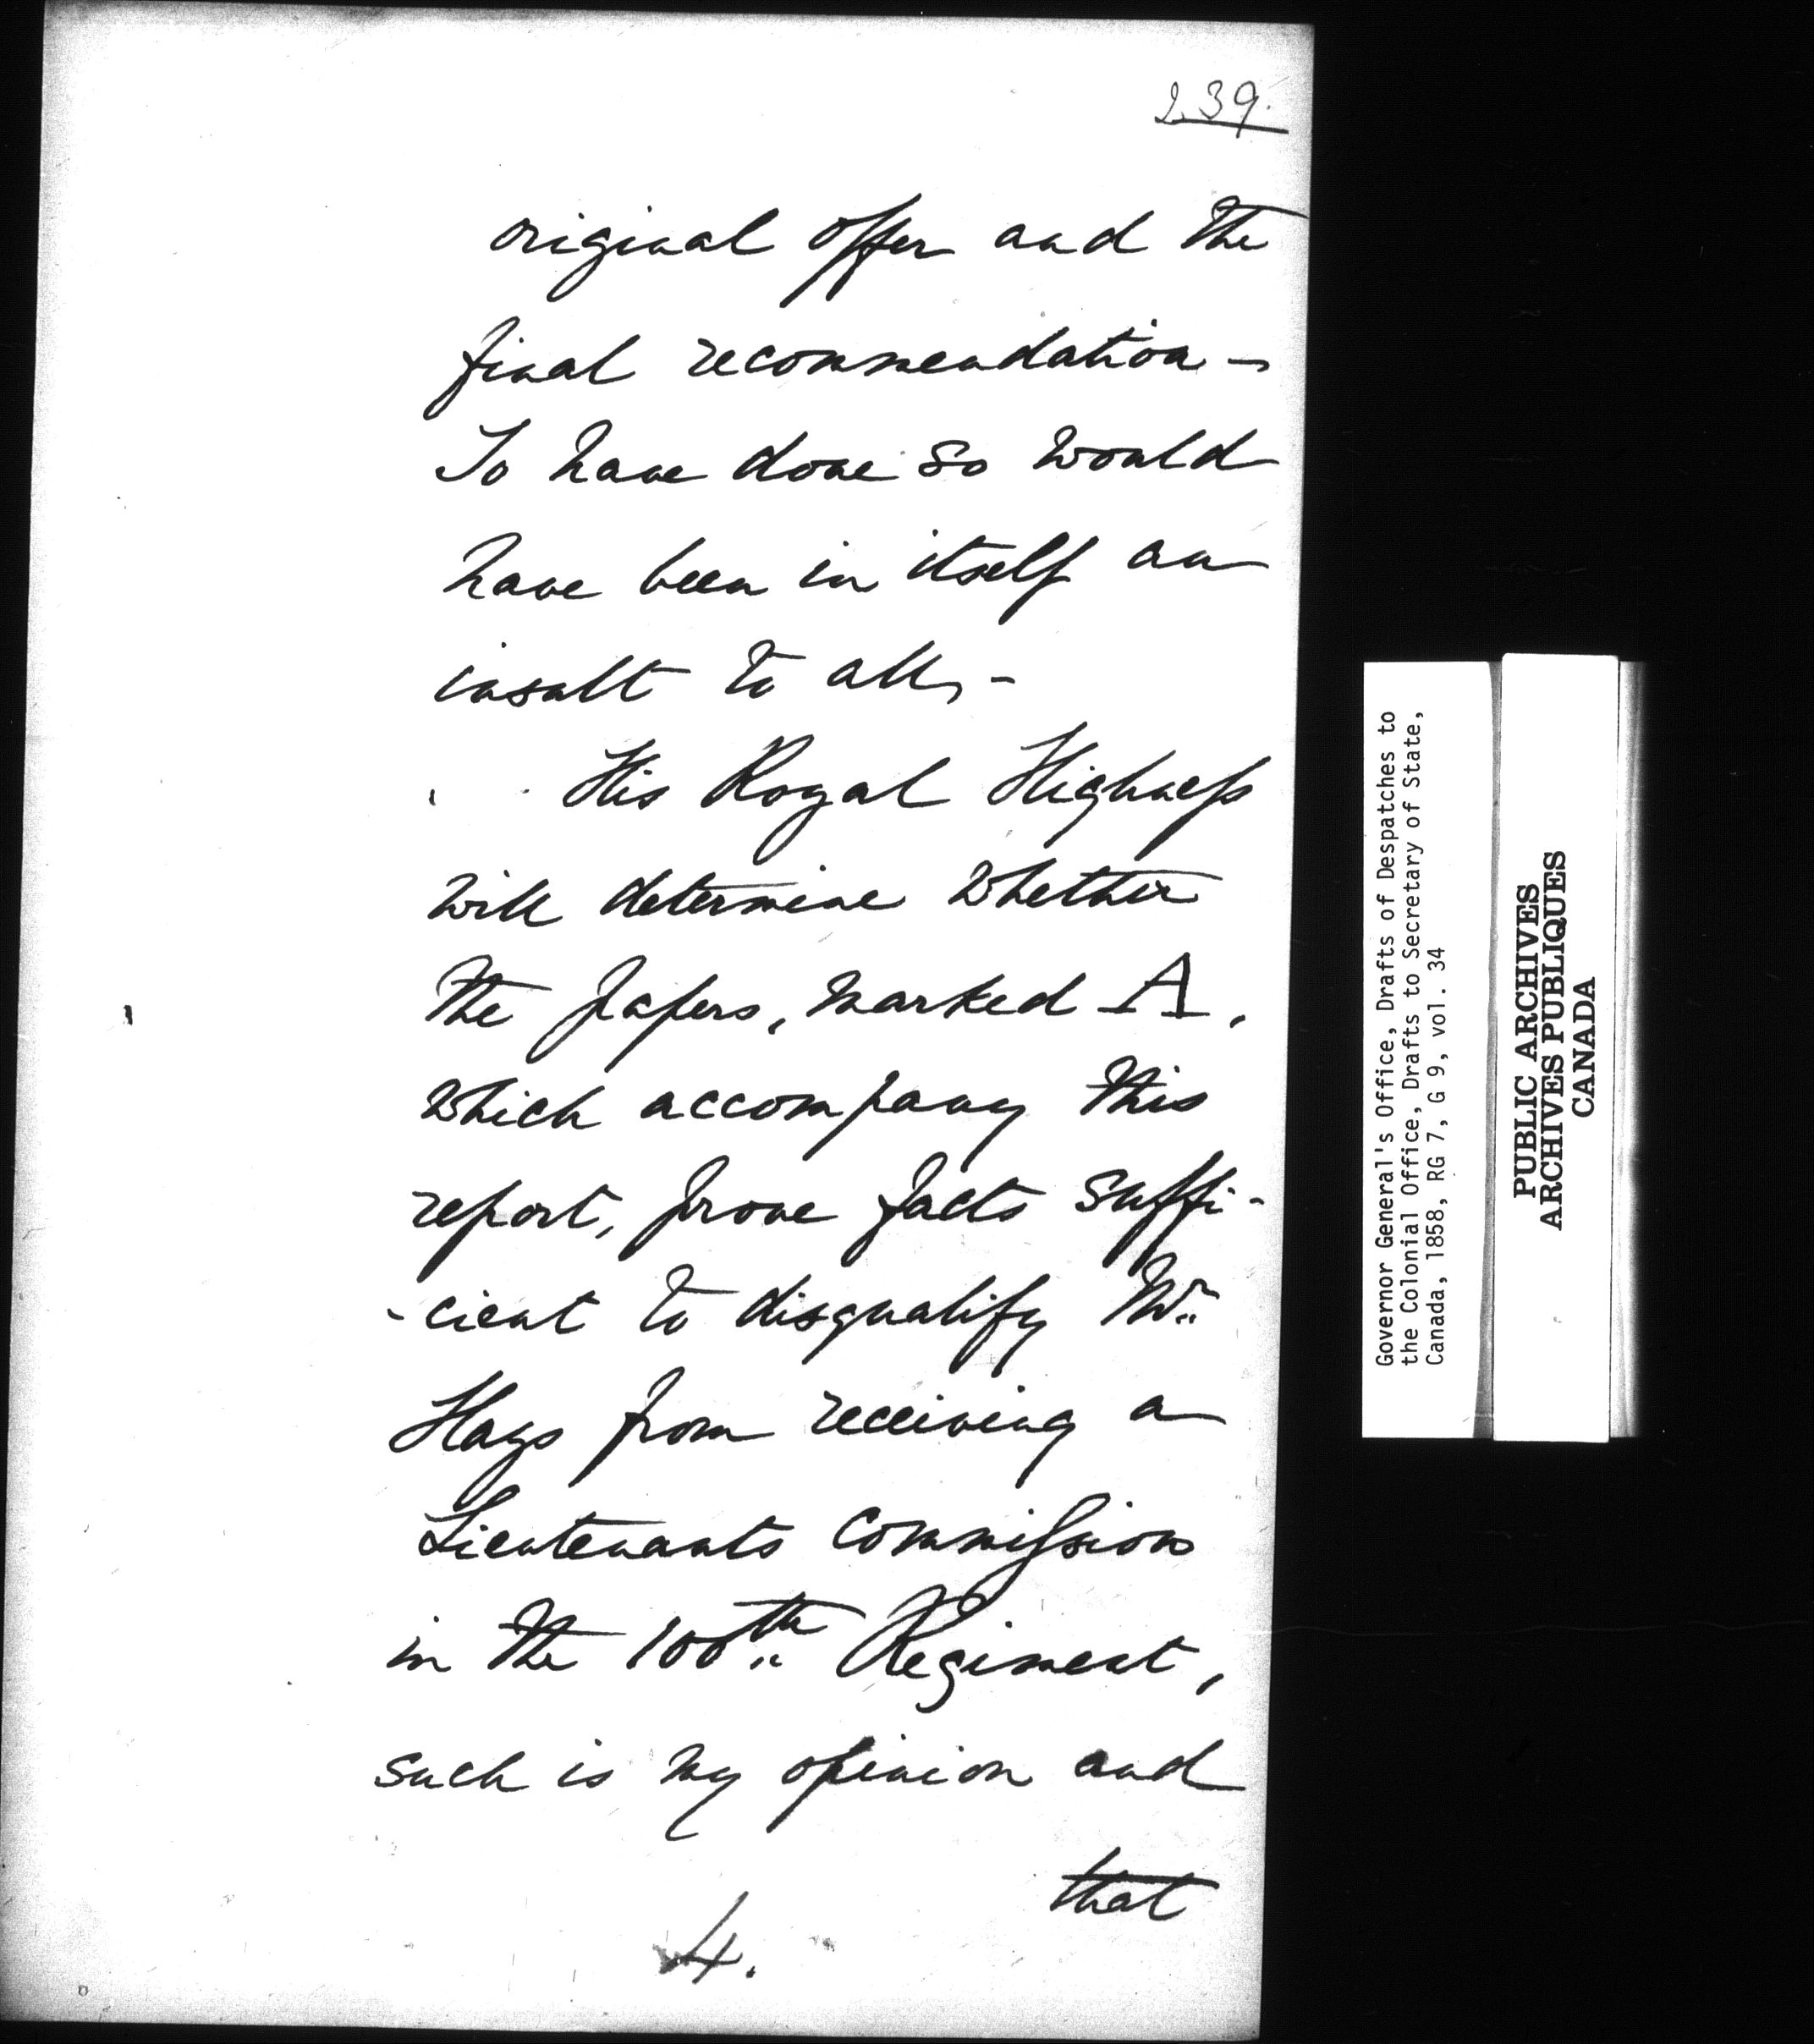 239.
original offer and the
final recommendation –
To have done so would
have been in itself an
insult to all, -
His Royal Highness
will determine whether
the papers, marked A,
which accompany this
report, prove facts suffi-
-cient to disqualify Mr.
Hays from receiving a
Lieutenants Commission
in the 100th Regiment,
such is my opinion and
that
4.
Governor General's Office, Drafts of Despatches to
the Colonial Office, Drafts to Secretary of State,
Canada, 1858, RG 7, G 9, vol. 34
PUBLIC ARCHIVES
ARCHIVES PUBLIQUES
CANADA